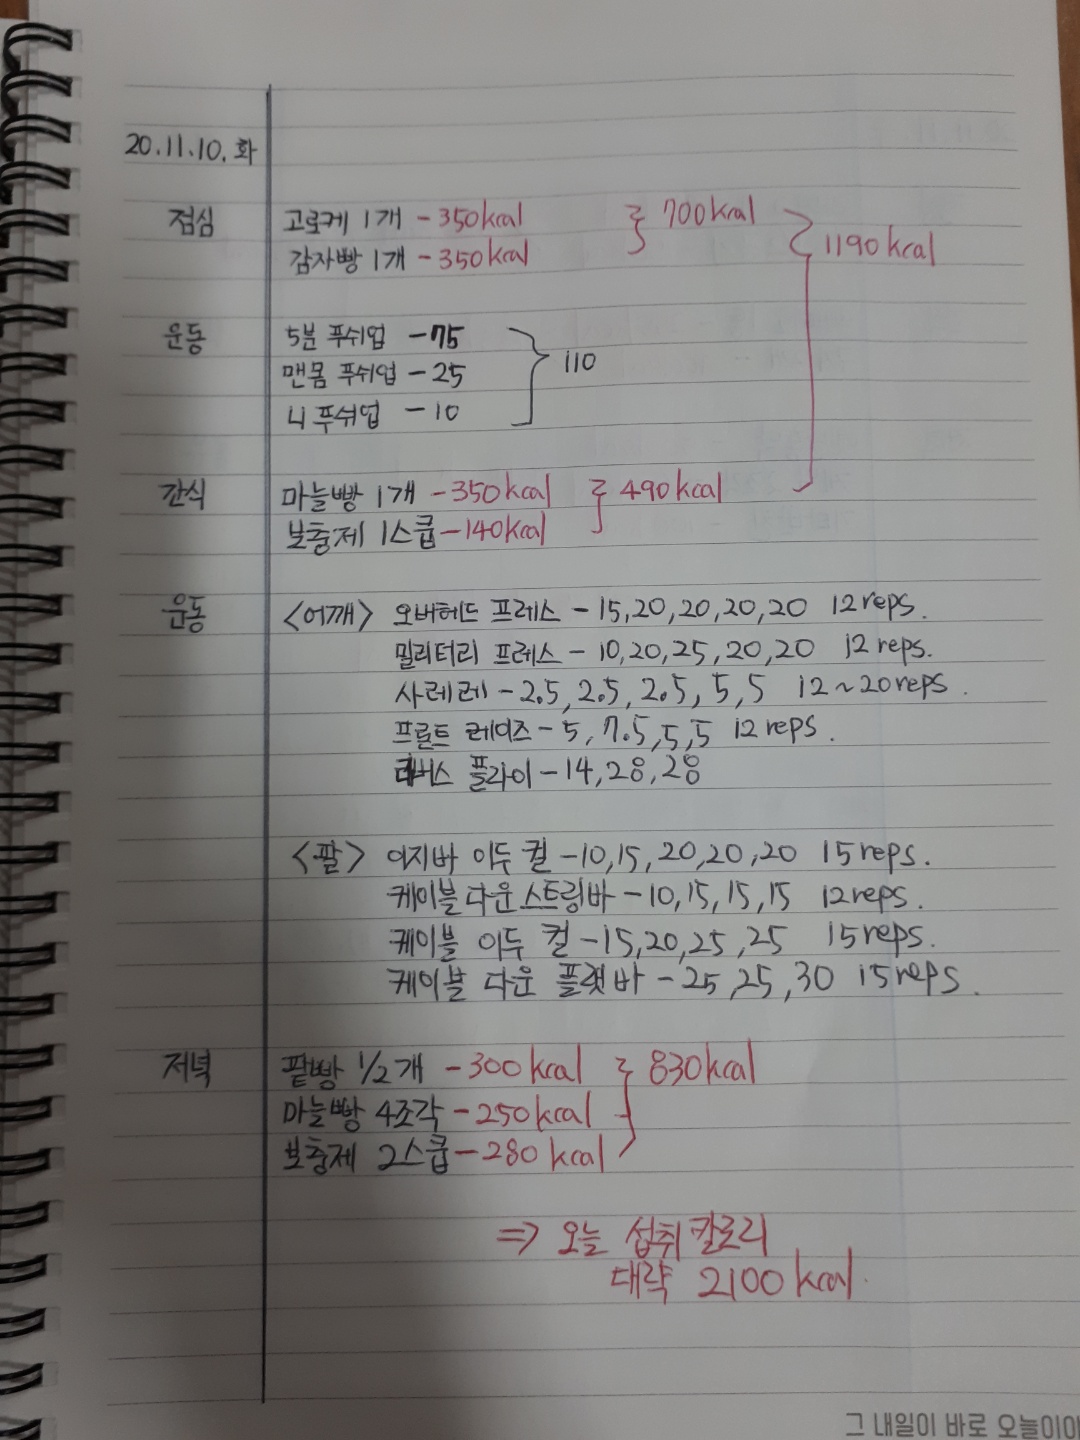 20.11.10. 화
점심 고로케 1개 - 350kcal 700kcal
감자빵 1개 - 350kcal 1190kcal
운동 5분 푸쉬업 - 75
맨몸 푸쉬업 - 25 110
니 푸쉬업 - 10
간식 마늘빵 1개 - 350kcal 490kcal
보충제 1스쿱 - 140kcal
운동 <어깨> 오버헤드 프레스 - 15, 20, 20, 20, 20 12reps.
밀리터리 프레스 - 10, 20, 25, 20, 20 12reps.
사레레 - 2.5, 2.5, 2.5, 5, 5 12~20reps.
프론트 레이즈 - 5, 7.5, 5, 5 12reps.
리버스 플라이 - 14, 28, 28
<팔> 이지바 이두 컬 - 10, 15, 20, 20, 20 15reps.
케이블 다운 스트링바 - 10, 15, 15, 15 12reps.
케이블 이두 컬 - 15, 20, 25, 25 15reps.
케이블 다운 플랫바 - 25, 25, 30 15reps.
저녁 팥빵 1/2개 - 300kcal 830kcal
마늘빵 4조각 - 250kcal
보충제 2스쿱 - 280kcal
⇒ 오늘 섭취 칼로리
대략 2100kcal.
그 내일이 바로 오늘이야